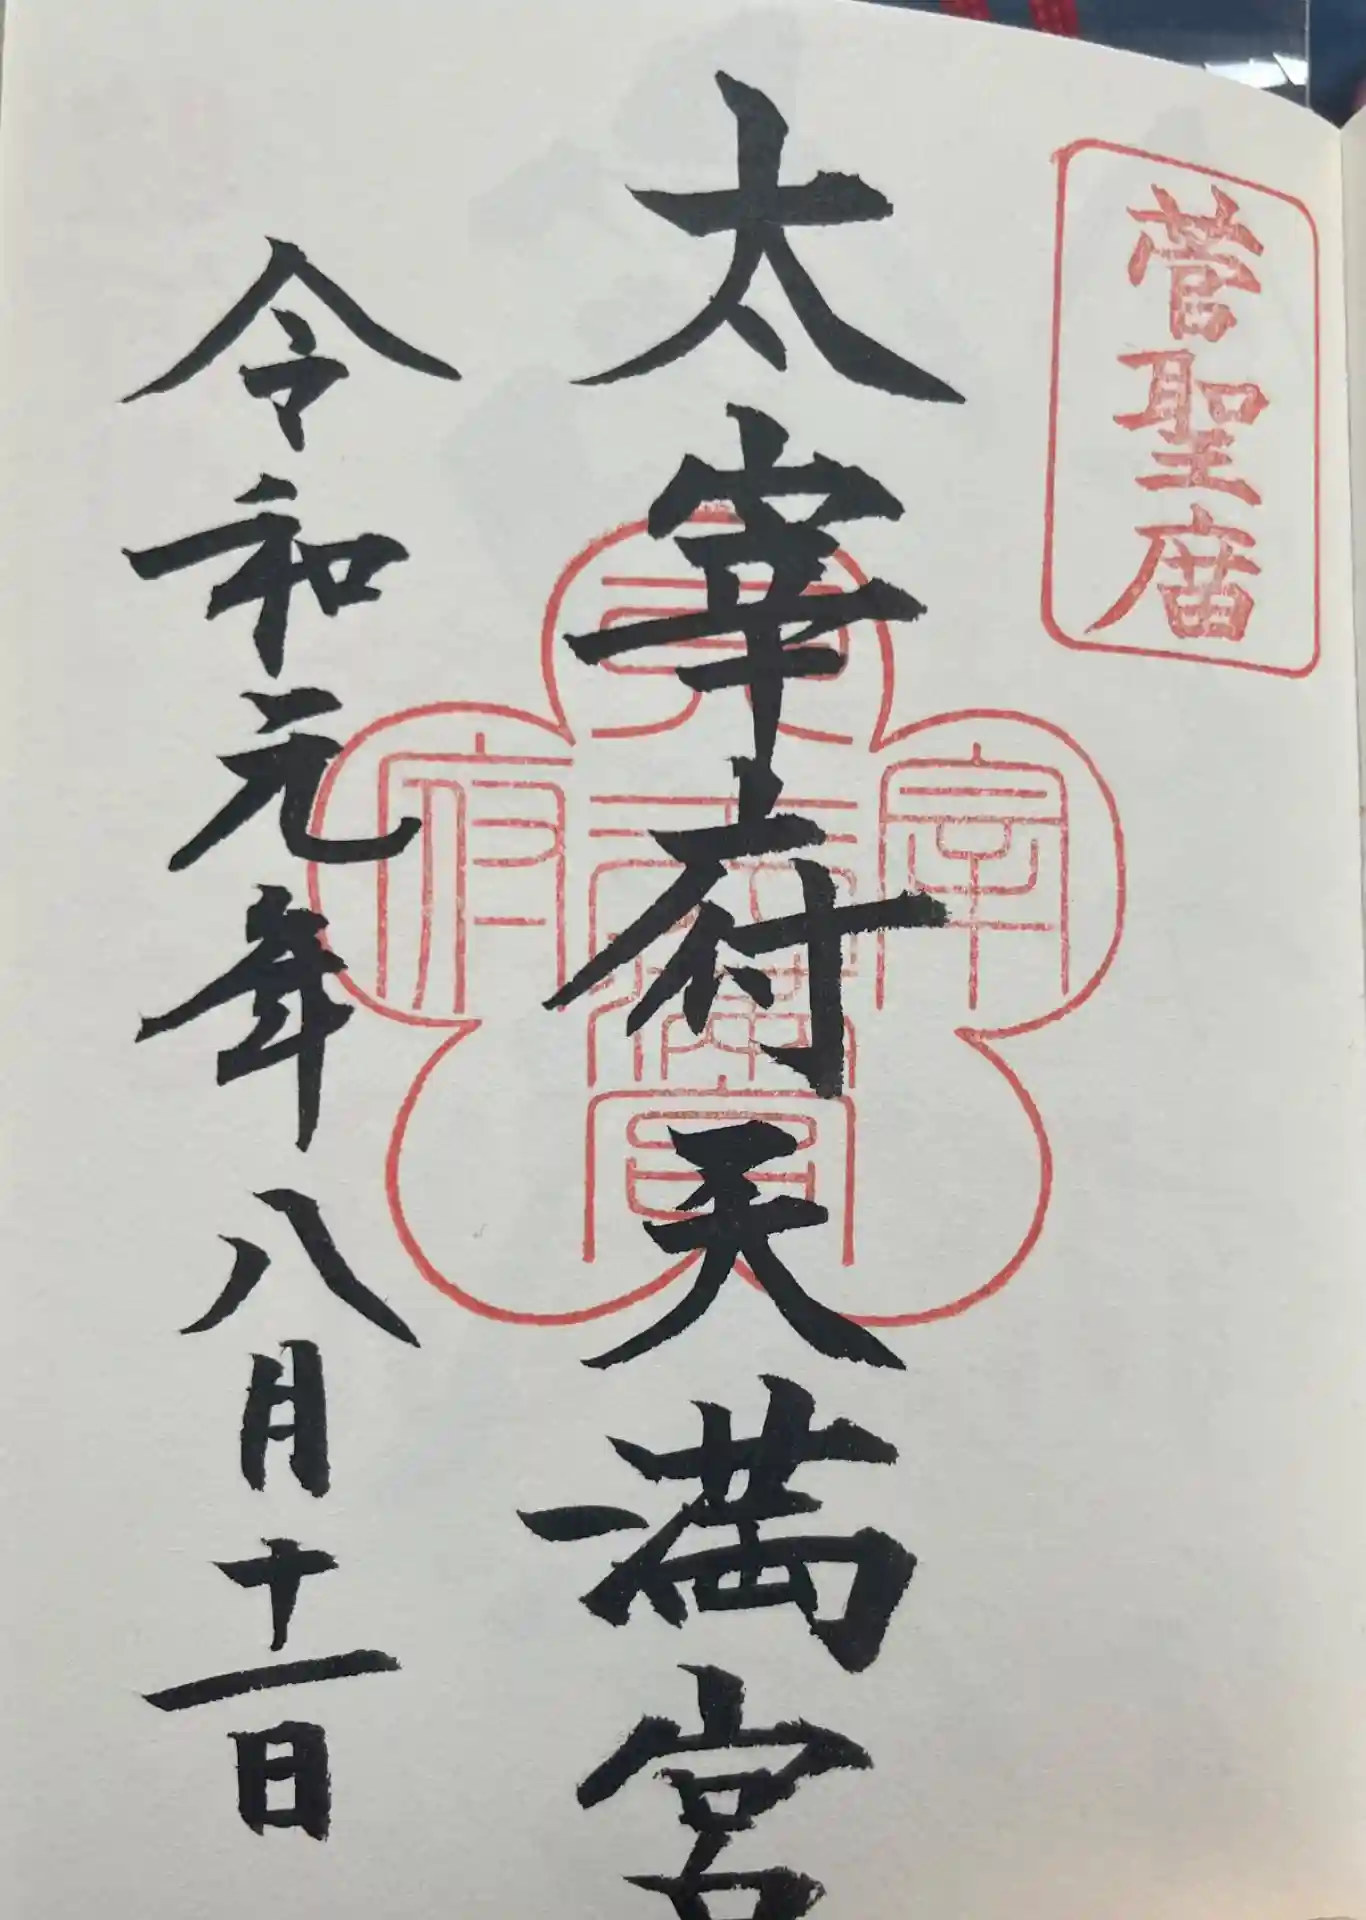 菅聖庿
太宰府天満宮
太宰府天満宮
令和元年八月十一日